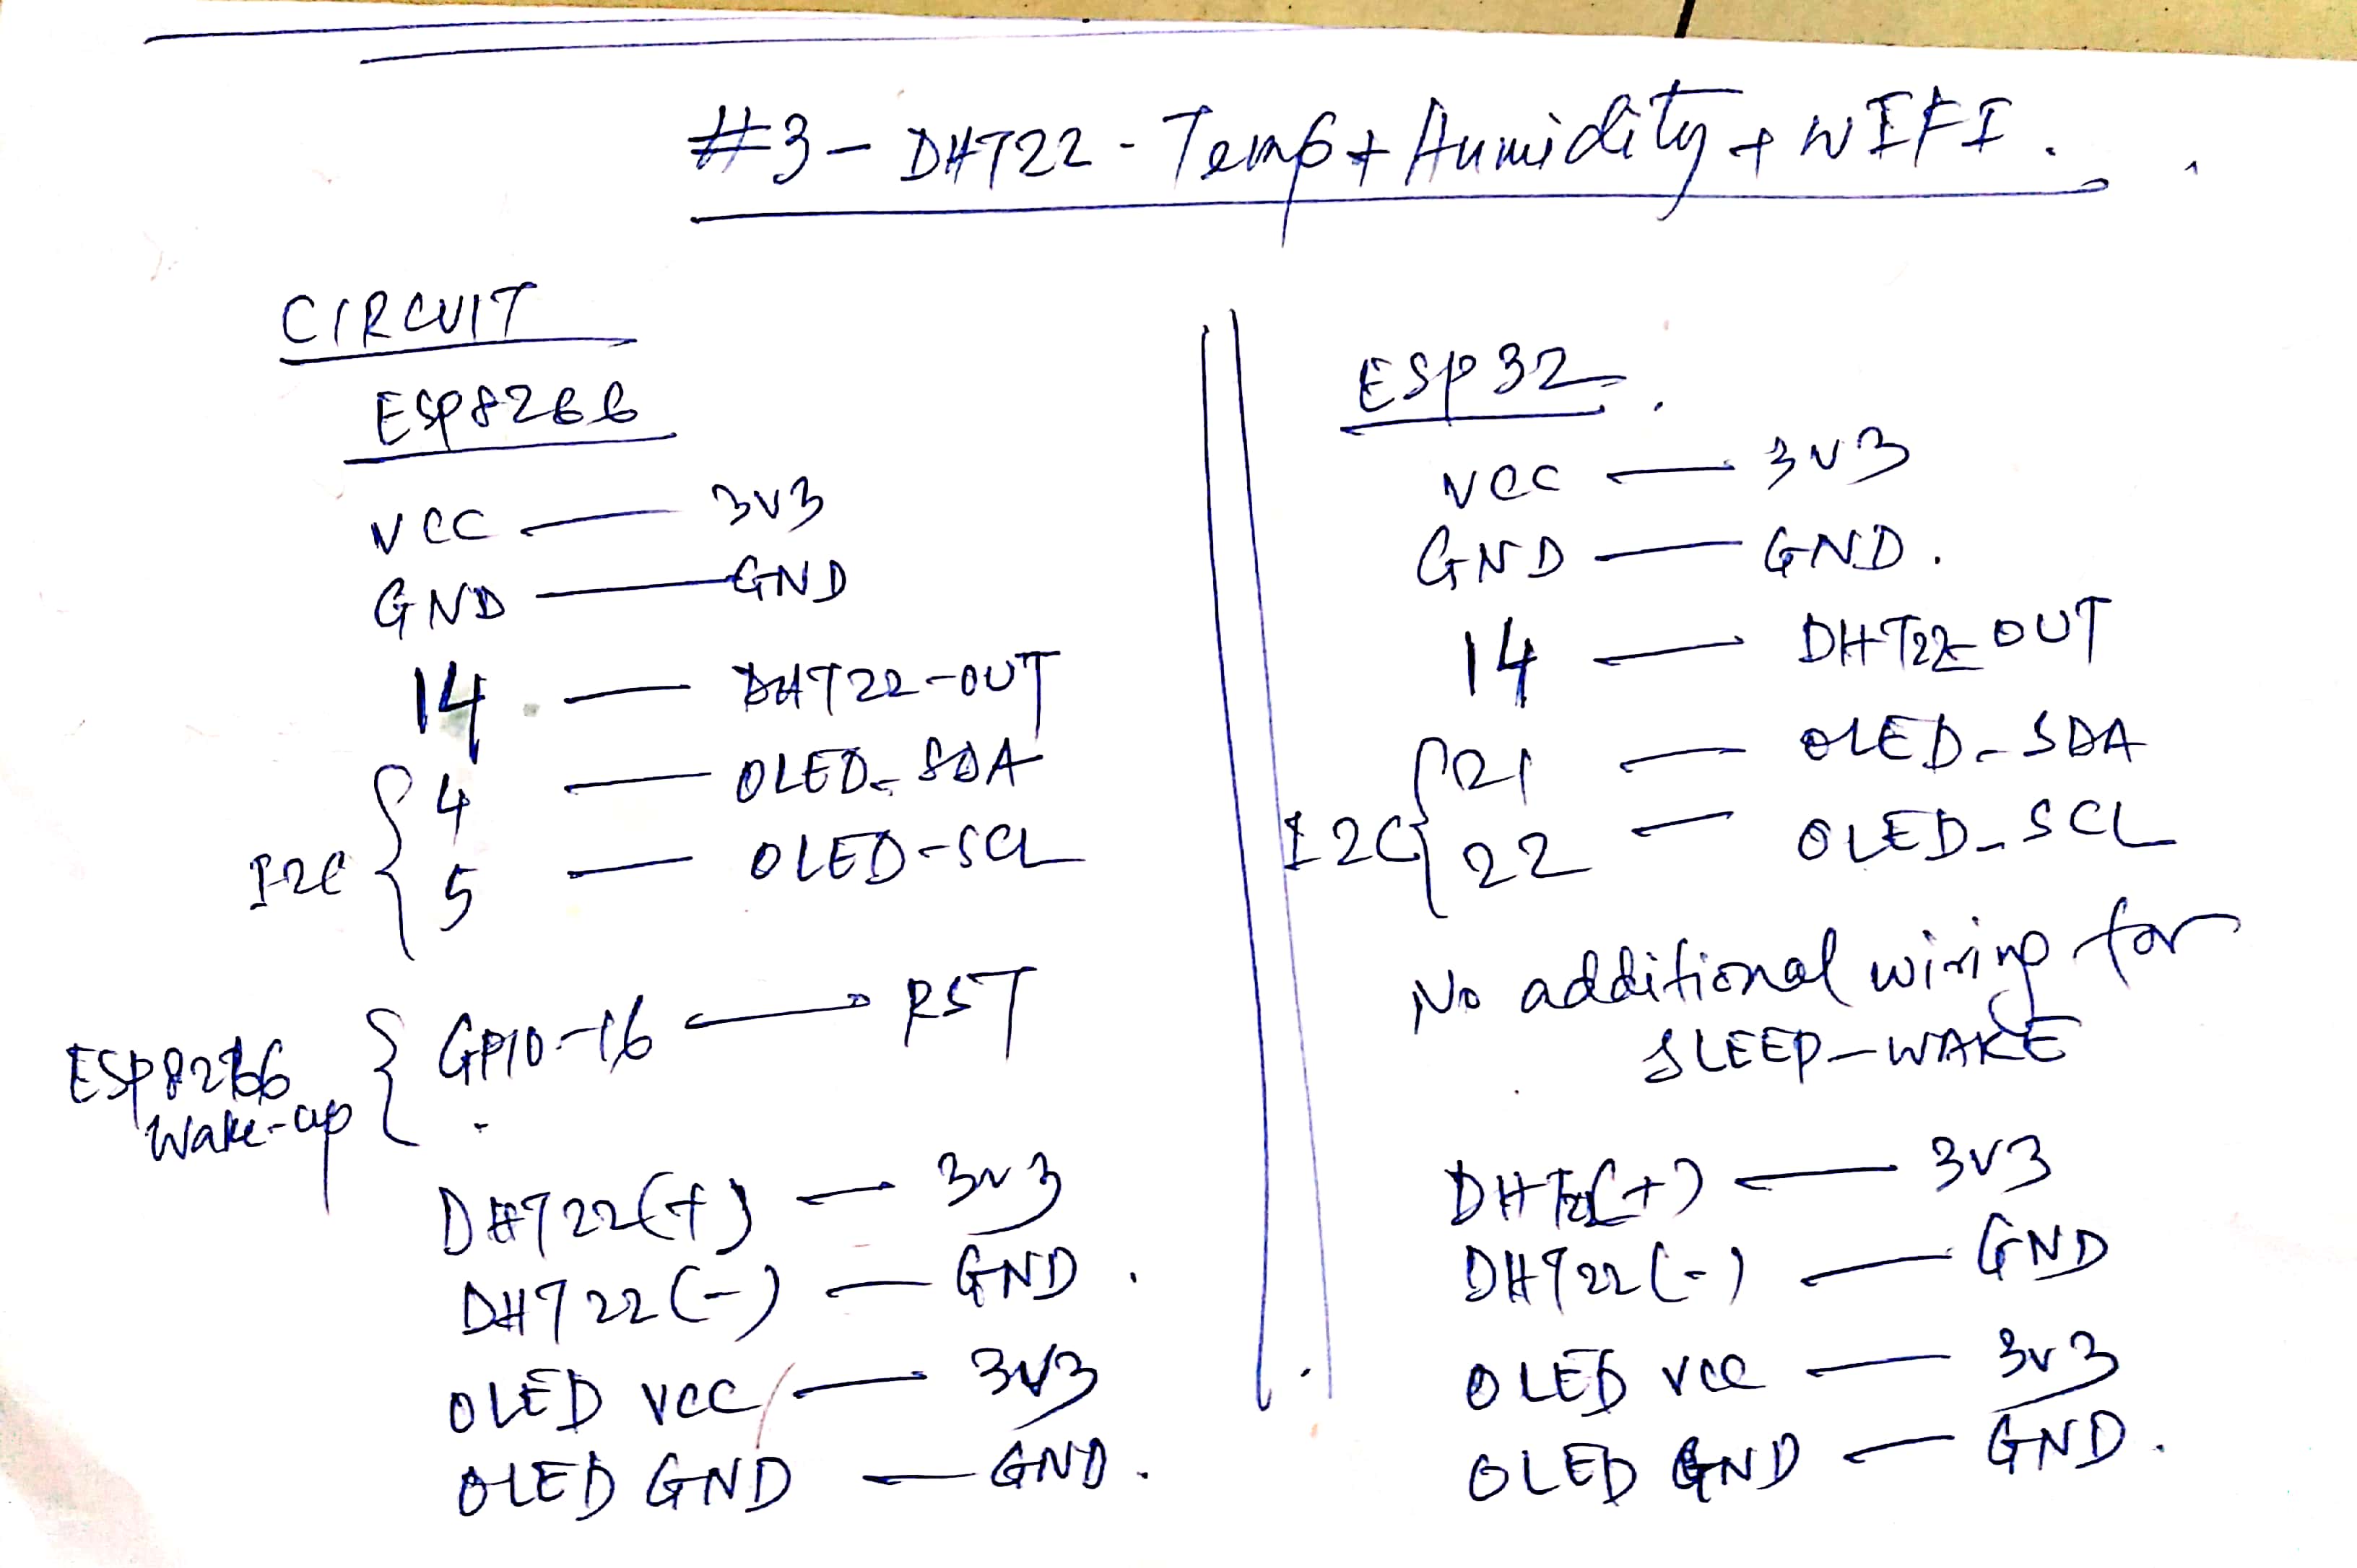 #3 - DHT22 - Temp + Humidity + WIFI.
CIRCUIT
ESP8266
VCC — 3V3
GND — GND
14 — DHT22-OUT
I2C { 4 — OLED-SDA
5 — OLED-SCL
ESP8266 Wake-up { GPIO-16 — RST
DHT22(+) — 3V3
DHT22(-) — GND.
OLED VCC — 3V3
OLED GND — GND.
ESP32.
VCC — 3V3
GND — GND.
14 — DHT22 OUT
I2C { 21 — OLED-SDA
22 — OLED-SCL
No additional wiring for
SLEEP-WAKE
DHT22(+) — 3V3
DHT22(-) — GND
OLED VCC — 3V3
OLED GND — GND.